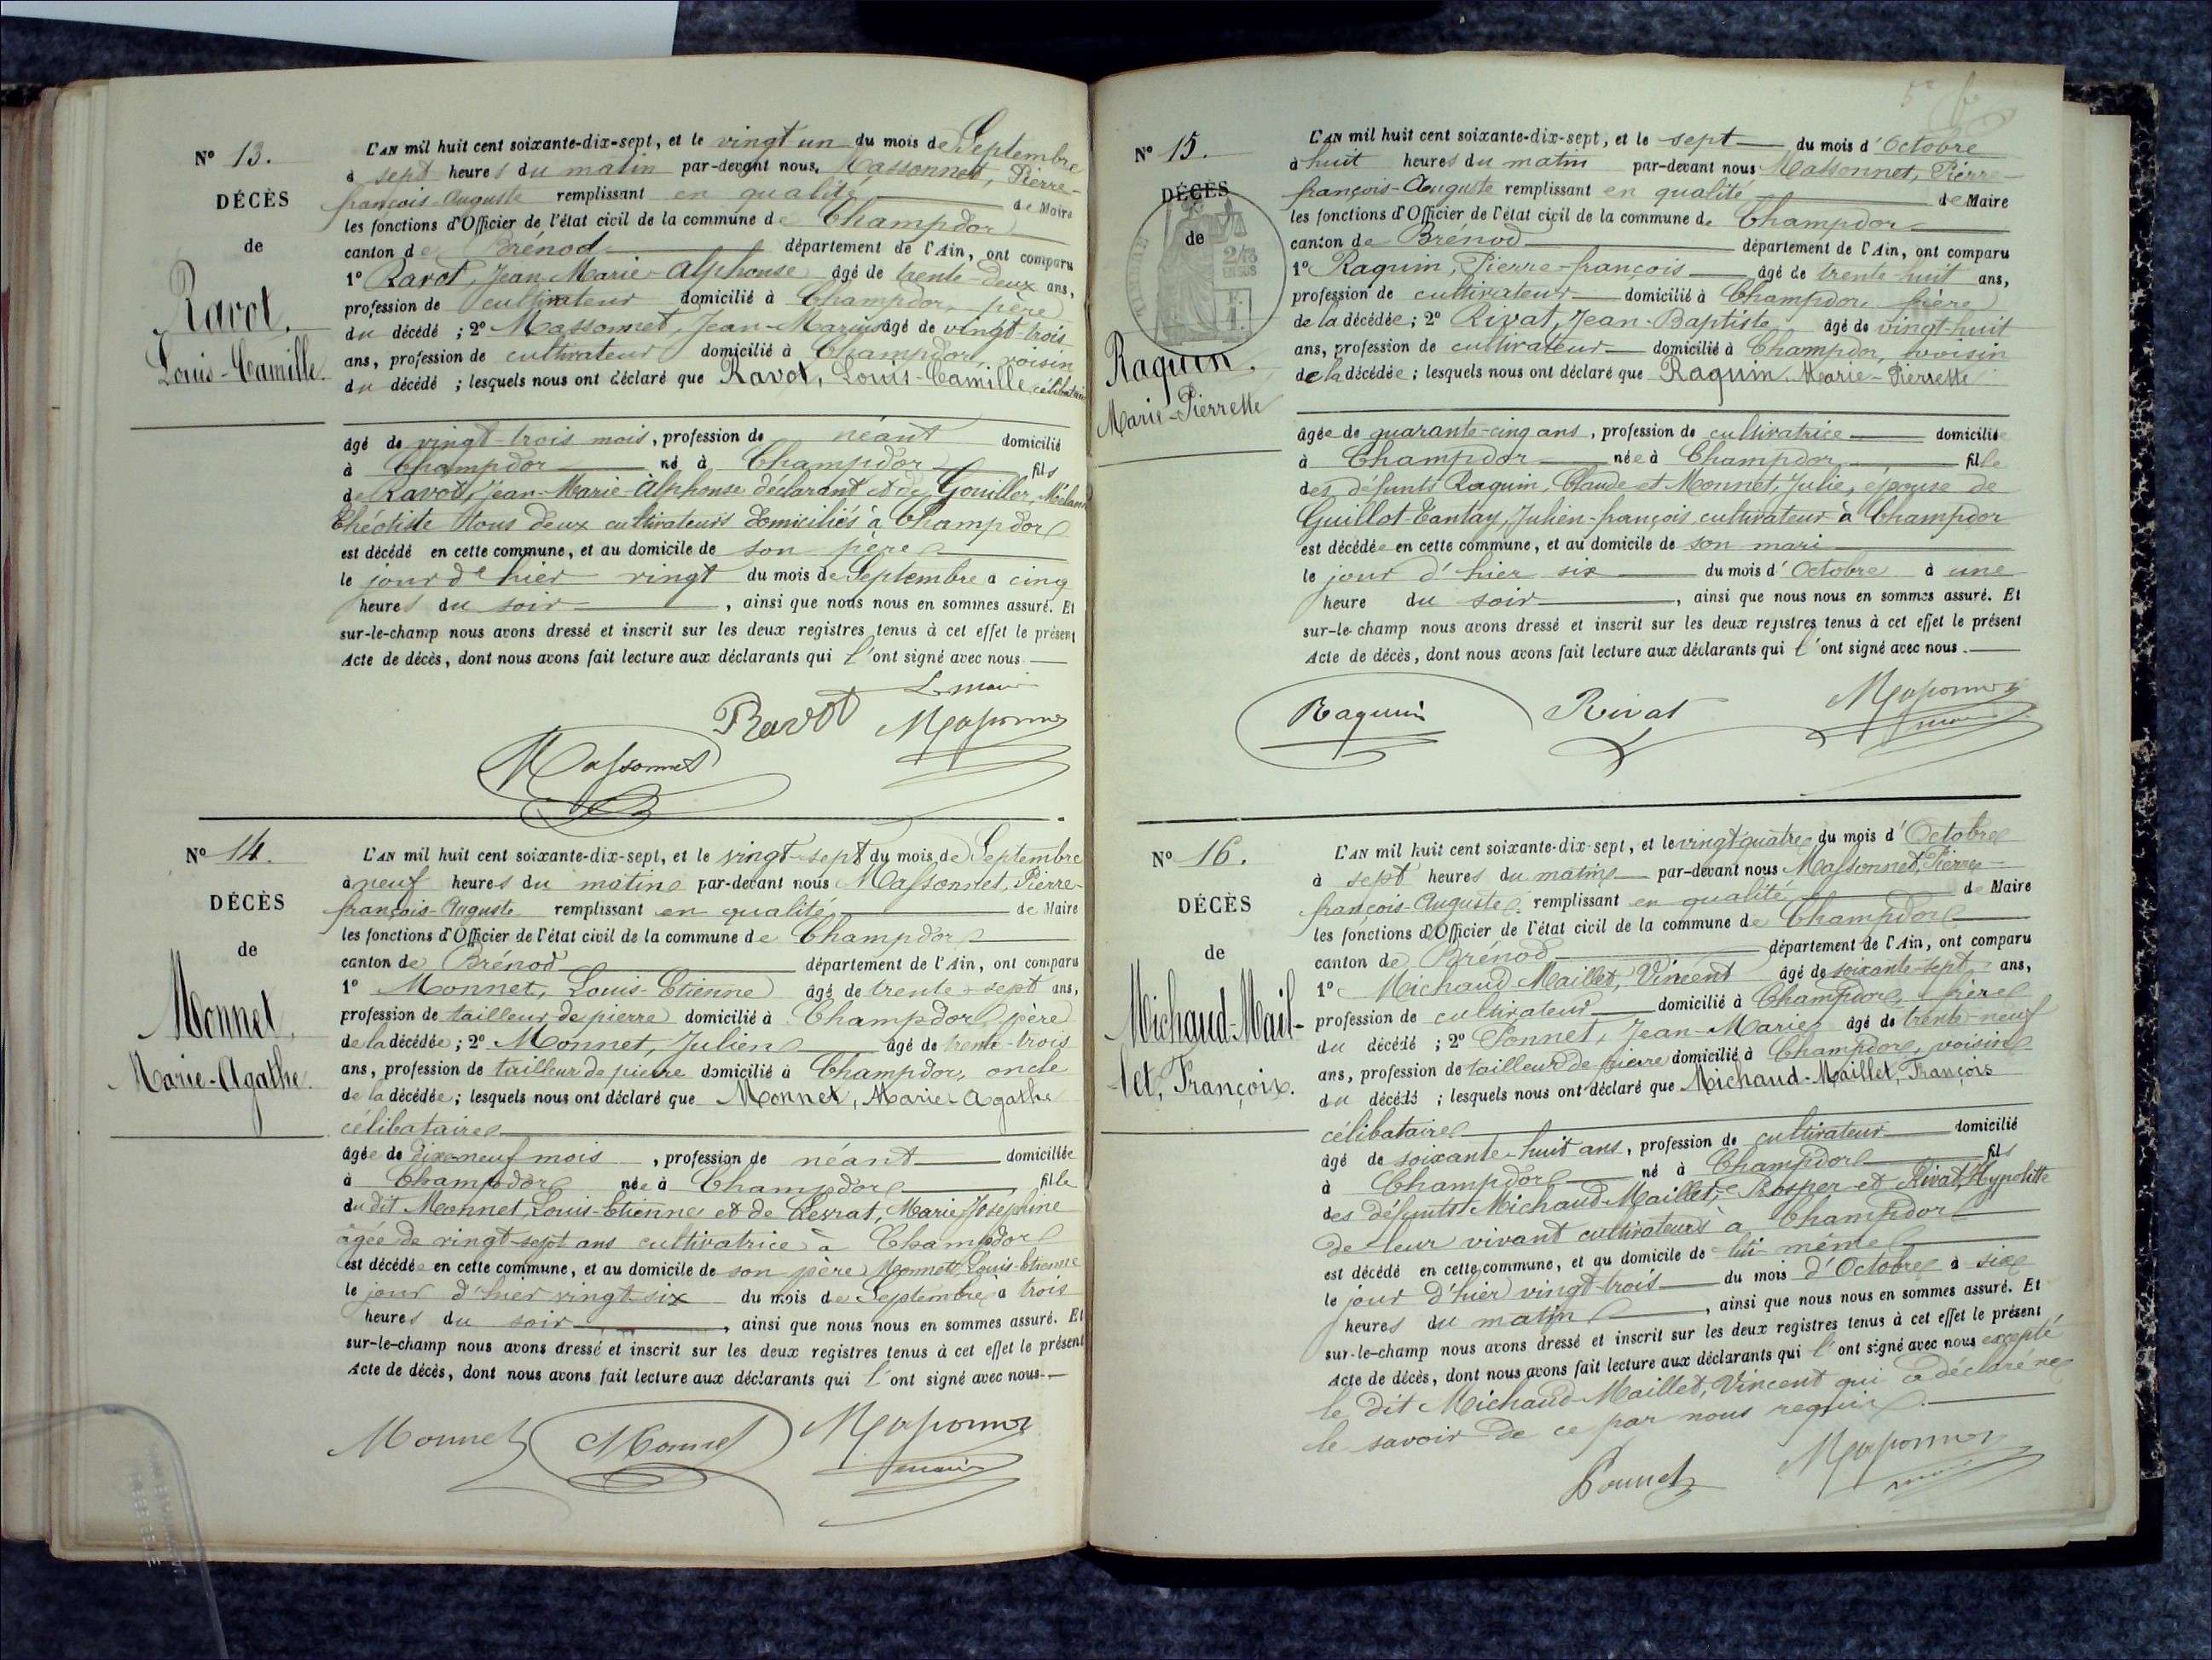 N° 13.
DÉCÈS
de
Ravot,
Louis-Camille.
L'AN mil huit cent soixante-dix-sept, et le vingt un du mois de Septembre
à sept heures du matin par-devant nous, Massonnet, Pierre-
françois-Auguste remplissant en qualité de Maire
les fonctions d'Officier de l'état civil de la commune de Champdor
canton de Brénod département de l'Ain, ont comparu
1° Ravot, Jean-Marie-Alphonse âgé de trente-deux ans,
profession de cultivateur domicilié à Champdor, père
du décédé ; 2° Massonnet, Jean-Marius âgé de vingt-trois
ans, profession de cultivateur domicilié à Champdor, voisin
du décédé ; lesquels nous ont déclaré que Ravot, Louis-Camille célibataire
âgé de vingt-trois mois, profession de néant domicilié
à Champdor né à Champdor fils
de Ravot, Jean-Marie-Alphonse déclarant et de Gouiller, Mélanie
Théotiste tous deux cultivateurs domiciliés à Champdor
est décédé en cette commune, et au domicile de son père
le jour d'hier vingt du mois de Septembre à cinq
heures du soir , ainsi que nous nous en sommes assuré. Et
sur-le-champ nous avons dressé et inscrit sur les deux registres tenus à cet effet le présent
Acte de décès, dont nous avons fait lecture aux déclarants qui l'ont signé avec nous.
Ravot
Massonnet
N° 14.
DÉCÈS
de
Monnet,
Marie-Agathe.
L'AN mil huit cent soixante-dix-sept, et le vingt-sept du mois de Septembre
à neuf heures du matin par-devant nous Massonnet, Pierre-
françois-Auguste remplissant en qualité de Maire
les fonctions d'Officier de l'état civil de la commune de Champdor
canton de Brénod département de l'Ain, ont comparu
1° Monnet, Louis-Etienne âgé de trente-sept ans,
profession de tailleur de pierre domicilié à Champdor, père
de la décédée ; 2° Monnet, Julien âgé de trente-trois
ans, profession de tailleur de pierre domicilié à Champdor, oncle
de la décédée ; lesquels nous ont déclaré que Monnet, Marie-Agathe
célibataire
âgée de dixe-neuf mois , profession de néant domiciliée
à Champdor née à Champdor fille
du dit Monnet, Louis-Etienne et de Levrat, Marie Josephine
âgée de vingt-sept ans cultivatrice à Champdor
est décédée en cette commune, et au domicile de son père Monnet, Louis-Etienne
le jour d'hier vingt-six du mois de Septembre à trois
heures du soir , ainsi que nous nous en sommes assuré. Et
sur-le-champ nous avons dressé et inscrit sur les deux registres tenus à cet effet le présent
Acte de décès, dont nous avons fait lecture aux déclarants qui l'ont signé avec nous.
Monnet Monnet Massonnet
maire
N° 15.
DÉCÈS
de
Raquin,
Marie-Pierrette
L'AN mil huit cent soixante-dix-sept, et le sept du mois d'Octobre
à huit heures du matin par-devant nous Massonnet, Pierre-
françois-Auguste remplissant en qualité de Maire
les fonctions d'Officier de l'état civil de la commune de Champdor
canton de Brénod département de l'Ain, ont comparu
1° Raquin, Pierre-françois âgé de trente-huit ans,
profession de cultivateur domicilié à Champdor, frère
de la décédée ; 2° Rivat, Jean-Baptiste âgé de vingt-huit
ans, profession de cultivateur domicilié à Champdor, voisin
de la décédée ; lesquels nous ont déclaré que Raquin, Marie-Pierrette
âgée de quarante-cinq ans, profession de cultivatrice domiciliée
à Champdor née à Champdor fille
des défunts Raquin, Claude et Monnet, Julie, épouse de
Guillot-Tantay, Julien-françois cultivateur à Champdor
est décédée en cette commune, et au domicile de son mari
le jour d'hier six du mois d'Octobre à une
heure du soir , ainsi que nous nous en sommes assuré. Et
sur-le-champ nous avons dressé et inscrit sur les deux registres tenus à cet effet le présent
Acte de décès, dont nous avons fait lecture aux déclarants qui l'ont signé avec nous.
Raquin Rivat Massonnet
N° 16.
DÉCÈS
de
Michaud-Mail-
let, François.
L'AN mil huit cent soixante-dix-sept, et le vingt-quatre du mois d'Octobre
à sept heures du matin par-devant nous Massonnet, Pierre-
françois-Auguste remplissant en qualité de Maire
les fonctions d'Officier de l'état civil de la commune de Champdor
canton de Brénod département de l'Ain, ont comparu
1° Michaud Maillet, Vincent âgé de soixante-sept ans,
profession de cultivateur domicilié à Champdor, frère
du décédé ; 2° Sonnet, Jean-Marie âgé de trente-neuf
ans, profession de tailleur de pierre domicilié à Champdor, voisin
du décédé ; lesquels nous ont déclaré que Michaud-Maillet, François
célibataire
âgé de soixante-huit ans, profession de cultivateur domicilié
à Champdor né à Champdor fils
des défunts Michaud-Maillet, Prosper et Rivat, Hyppolitte
de leur vivant cultivateurs à Champdor
est décédé en cette commune, et au domicile de lui-même
le jour d'hier vingt-trois du mois d'Octobre à six
heures du matin , ainsi que nous nous en sommes assuré. Et
sur-le-champ nous avons dressé et inscrit sur les deux registres tenus à cet effet le présent
Acte de décès, dont nous avons fait lecture aux déclarants qui l'ont signé avec nous excepté
le dit Michaud-Maillet, Vincent qui a déclaré ne
le savoir de ce par nous requis.
Sonnet Massonnet